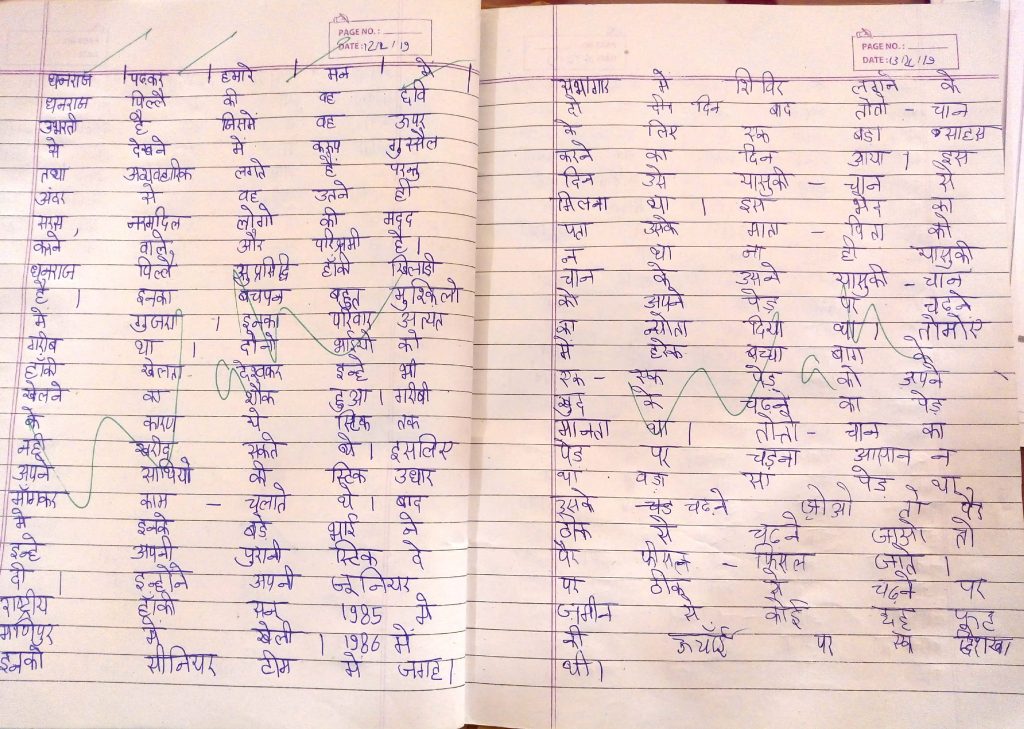 PAGE NO.:
DATE: 12/2/19
धनराज । पढकर । हमारे । मन । में
धनराज पिल्लै की वह छवि
उभरती है जिसमें वह ऊपर
से देखने में करूप गुस्सैल
तथा अव्यवहारिक लगते है परन्तु
अंदर से वह उतने ही
सरस, नरमदिल लोगो की मदद
करने वाले, और परिश्रमी है।
धनराज पिल्लै सुप्रसिद्धि हॉकी खिलाडी
है। इनका बचपन बहुत मुश्किलो
में गुजरा। इनका परिवार अत्यंत
गरीब था। दोनो भाईयो को
हॉकी खेलता देखकर इन्हे भी
खेलने का शौक हुआ। गरीबी
के कारण ये स्टिक तक
नही खरीद सकते थे। इसलिए
अपने साथियो की स्टिक उधार
माँगकर काम - चलाते थे। बाद
मे इनके बडे भाई ने
इन्हे अपनी पुरानी स्टिक दे
दी। इन्होंने अपनी जूनियर
राष्ट्रीय हॉकी सन् 1985 में
मणिपुर में खेली। 1986 में
इनको सीनियर टीम में जगह।
PAGE NO.:
DATE: 13/2/19
सभागार मे शिविर लगाने के
दो तीन दिन बाद तोतो - चान
के लिए एक बडा साहस
करने का दिन आया। इस
दिन उसे यासुकी - चान से
मिलना था। इस भेद का
पता उसके माता - पिता को
न था ना ही यासुकी
चान के उसने यासुकी - चान
को अपने पेड़ पर चढने
का न्योता दिया था। तोमोए
में हरेक बच्चा बाग के
एक - एक पेड़ को अपने
खुद के चढने का पेड़
मानता था। तोत्तो - चान का
पेड़ पर चड़ना आसान न
था वड़ा सा पेड़ था
उसके चढ़ने तो पैर
ठीक से चढने जाओ तो
पैर फिसल - फिसल जाते।
पर ठीक से चढ़ने पर
ज़मीन से कोई छह फुट
की ऊचाई पर
थी।